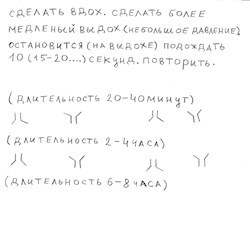 СДЕЛАТЬ ВДОХ. СДЕЛАТЬ БОЛЕЕ
МЕДЛЕНЫЙ ВЫДОХ (НЕБОЛЬШОЕ ДАВЛЕНИЕ)
ОСТАНОВИТСЯ (НА ВЫДОХЕ) ПОДОЖДАТЬ
10 (15-20....) СЕКУНД. ПОВТОРИТЬ.
(ДЛИТЕЛЬНОСТЬ 20-40 МИНУТ)
(ДЛИТЕЛЬНОСТЬ 2-4 ЧАСА)
(ДЛИТЕЛЬНОСТЬ 6-8 ЧАСА)